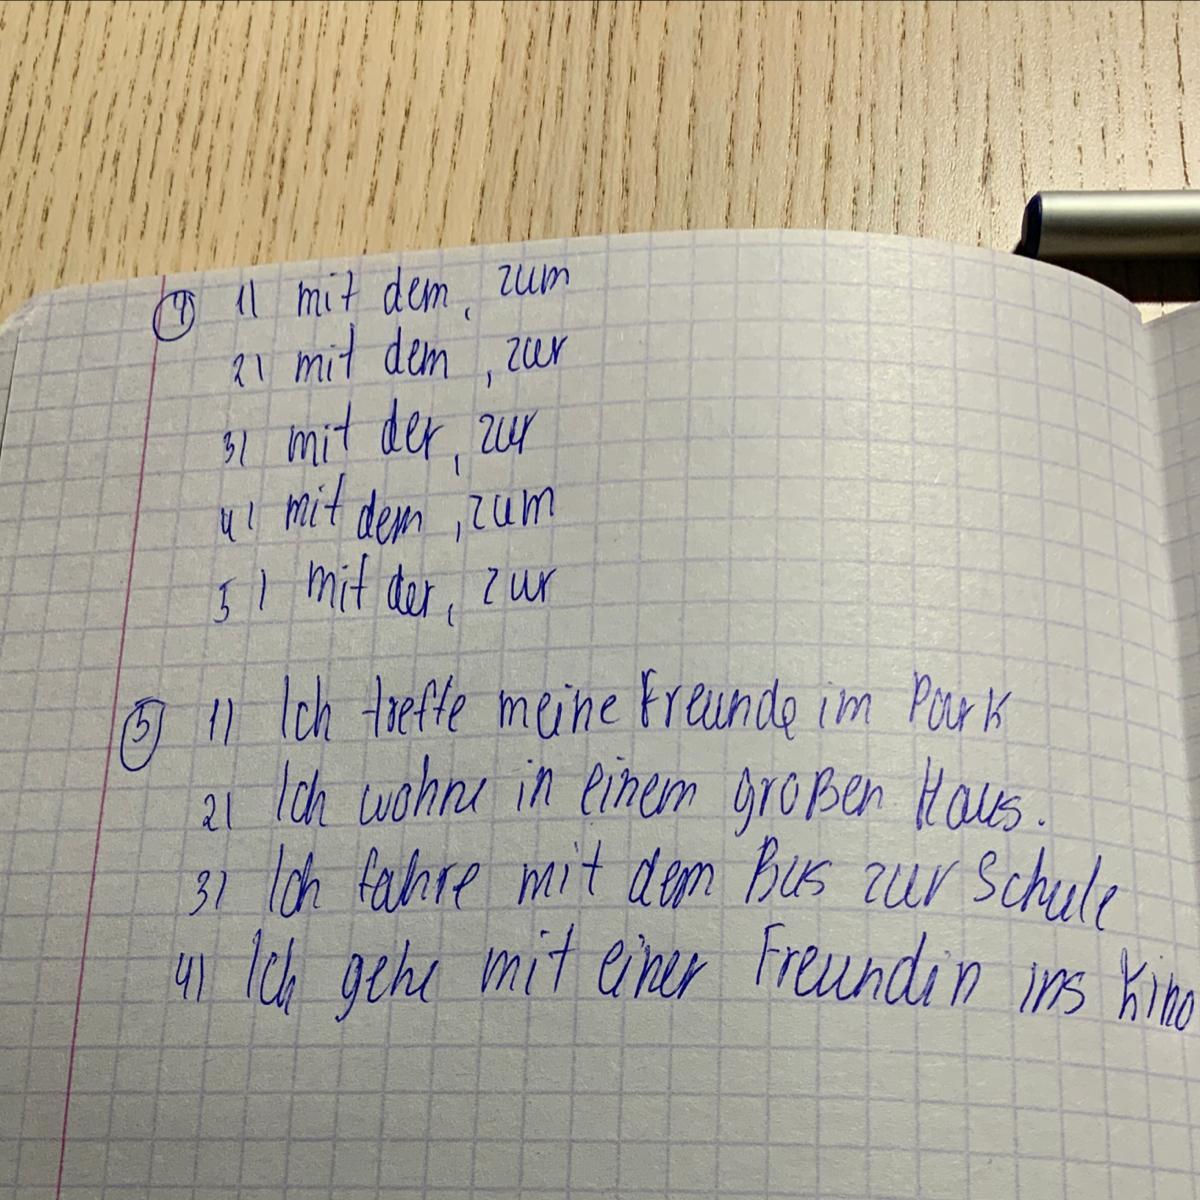 4 1) mit dem, zum
2) mit dem, zur
3) mit der, zur
4) mit dem, zum
5) mit der, zur
5 1) Ich treffe meine Freunde im Park
2) Ich wohne in einem großen Haus.
3) Ich fahre mit dem Bus zur Schule
4) Ich gehe mit einer Freundin ins Kino